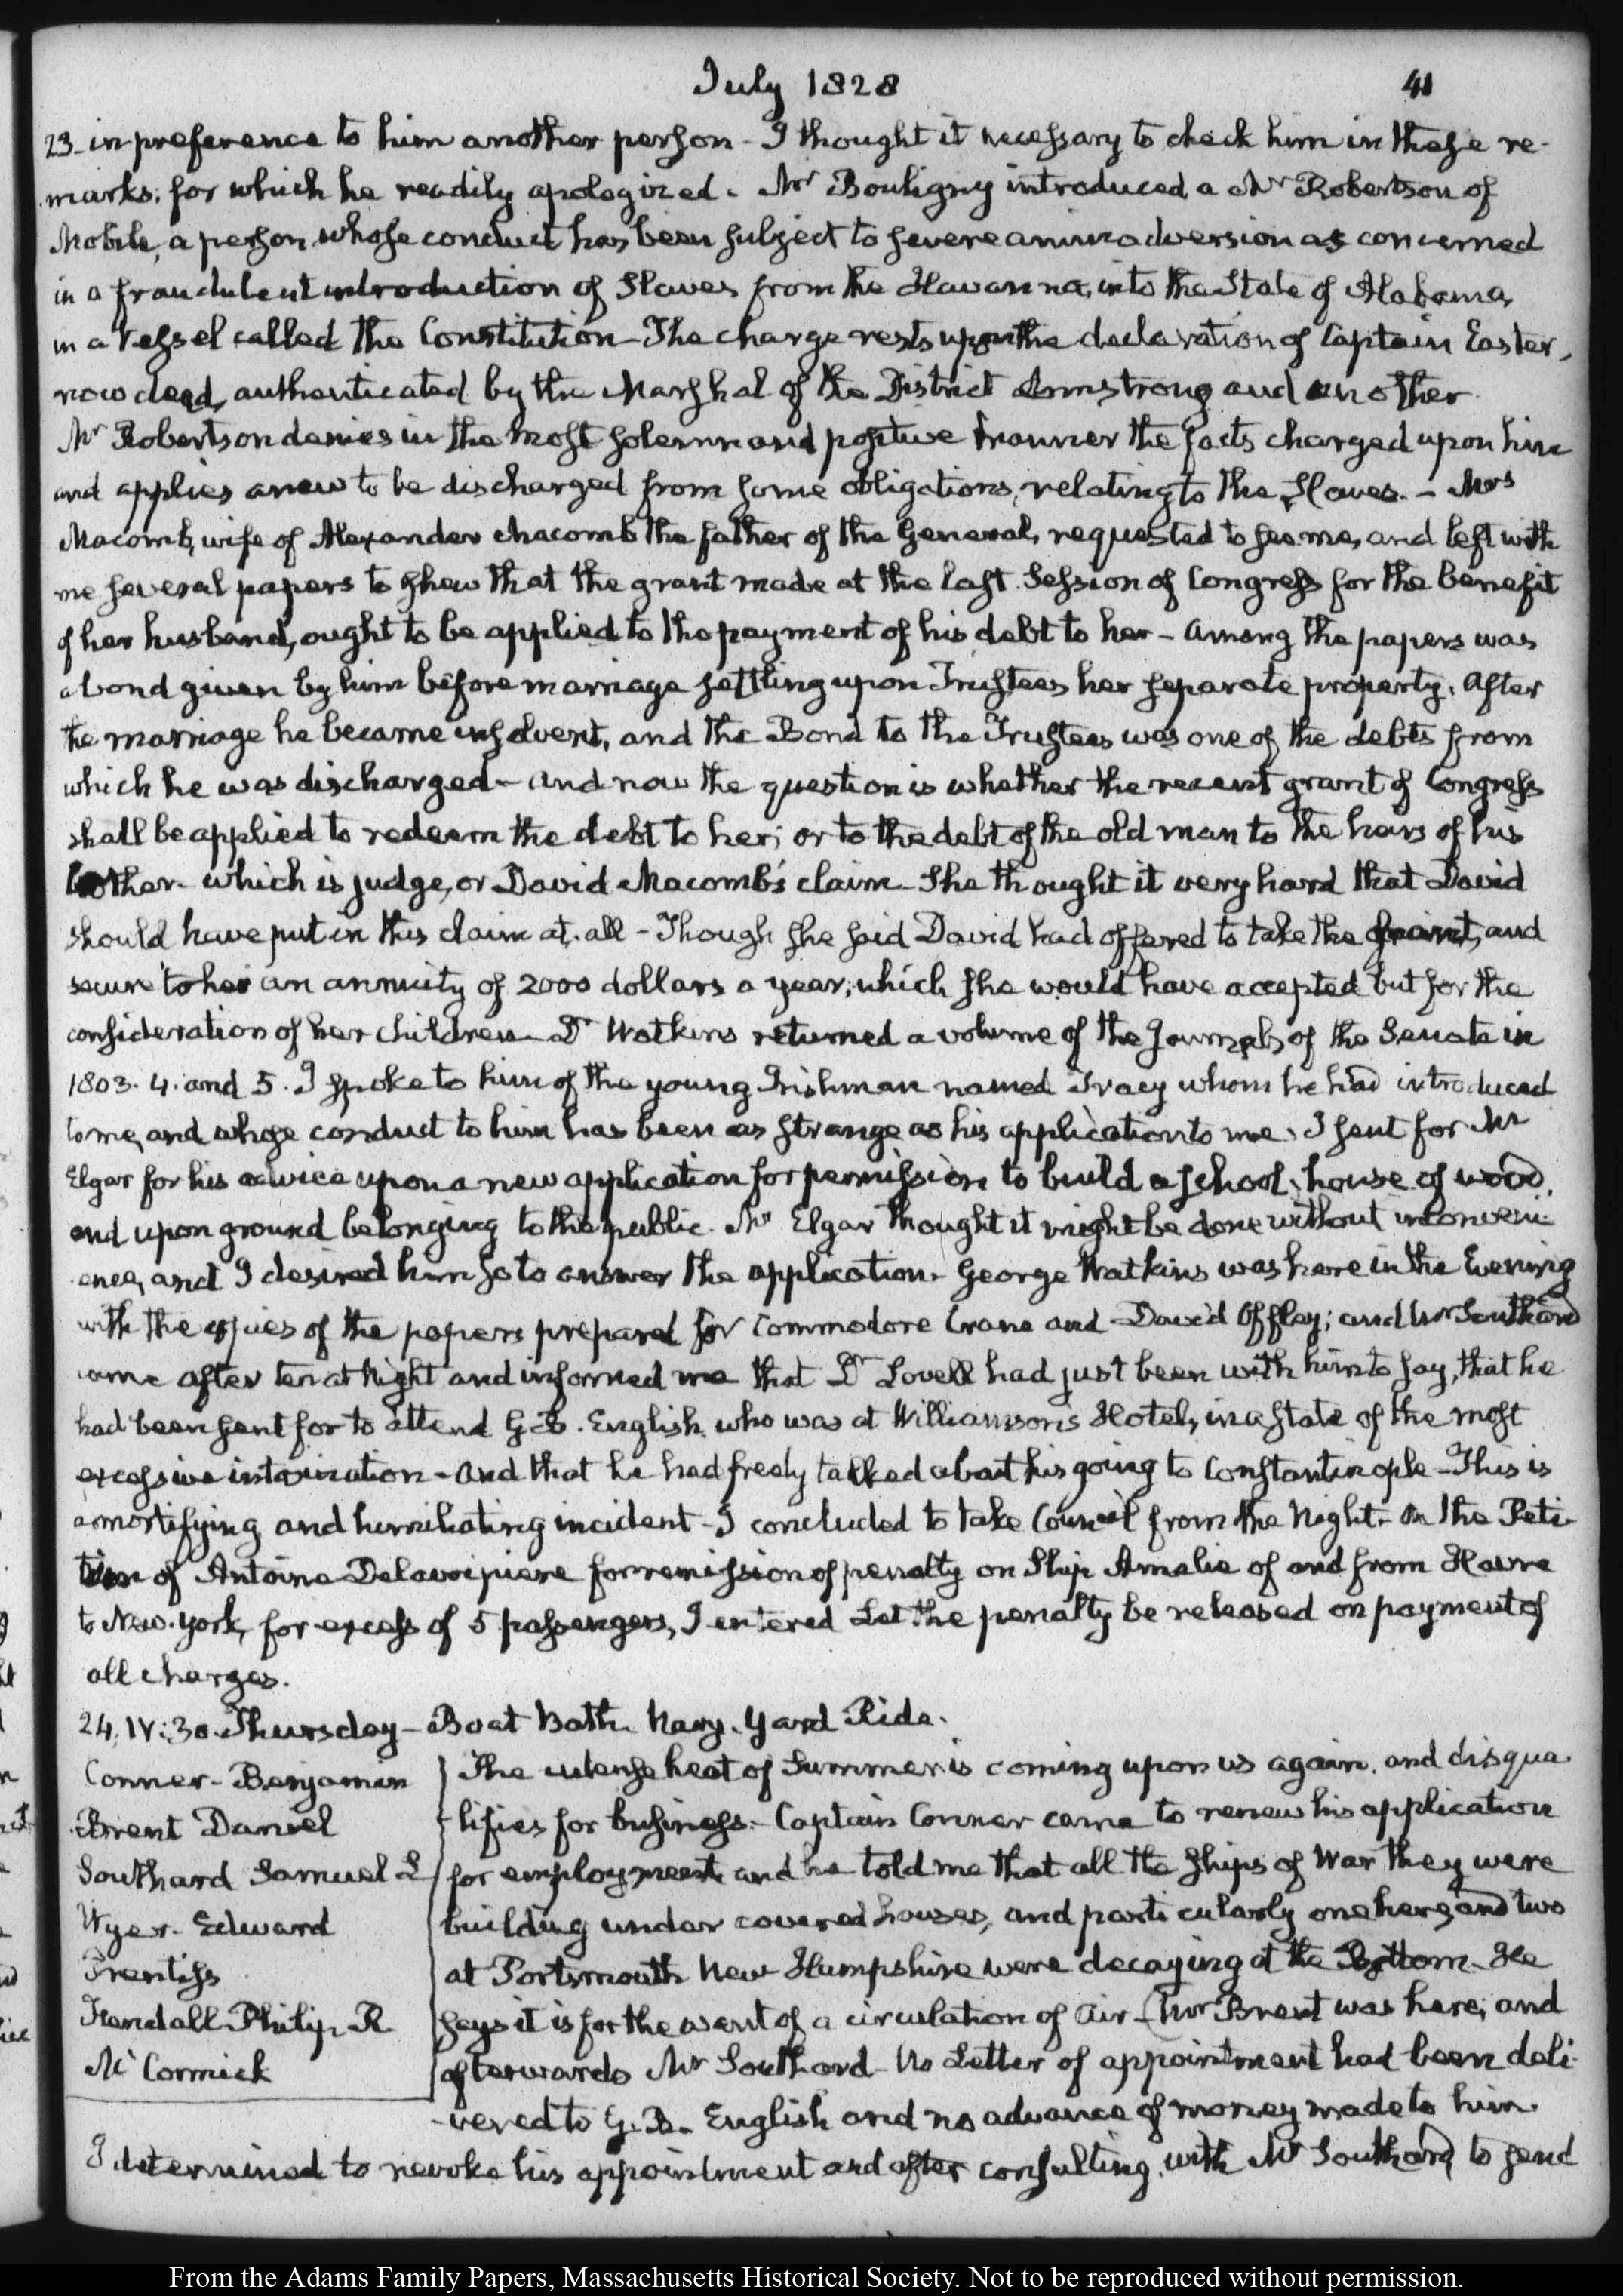 July 1828
41
23. in preference to him another person - I thought it necessary to check him in these re-
marks; for which he readily apologized. Mr Bouligny introduced a Mr Robertson of
Mobile, a person whose conduct has been subject to severe animadversion as concerned
in a fraudulent introduction of Slaves from the Havanna, into the State of Alabama,
in a Vessel called the Constitution - The charge rests upon the declaration of Captain Easter,
now dead, authenticated by the Marshal of the District Armstrong and another
Mr Robertson denies in the most solemn and positive manner the facts charged upon him
and applies anew to be discharged from some obligations, relating to the Slaves. - Mrs
Macomb, wife of Alexander Macomb the father of the General, requested to see me, and left with
me several papers to shew that the grant made at the last Session of Congress for the benefit
of her husband, ought to be applied to the payment of his debt to her - Among the papers was
a bond given by him before marriage settling upon Trustees her separate property. After
the marriage he became insolvent, and the Bond to the Trustees was one of the debts from
which he was discharged - and now the question is whether the recent grant of Congress
shall be applied to redeem the debt to her; or to the debt of the old man to the heirs of his
brother - which is judge, or David Macomb's claim - She thought it very hard that David
should have put in this claim at all - Though she said David had offered to take the grant, and
secure to her an annuity of 2000 dollars a year, which she would have accepted but for the
consideration of her children - Dr Watkins returned a volume of the Journals of the Senate in
1803. 4. and 5. I spoke to him of the young Irishman named Tracy whom he had introduced
to me, and whose conduct to him has been as strange as his application to me. I sent for Mr
Elgar for his advice upon a new application for permission to build a school-house of wood,
and upon ground belonging to the public. Mr Elgar thought it might be done without inconveni-
ence, and I desired him so to answer the application. George Watkins was here in the Evening
with the copies of the papers prepared for Commodore Crane and David Offley; and Mr Southard
came after ten at Night and informed me that Dr Lovell had just been with him to say, that he
had been sent for to attend G. B. English, who was at Williamson's Hotel, in a state of the most
excessive intoxication - and that he had freely talked about his going to Constantinople - This is
a mortifying and humiliating incident - I concluded to take Counsel from the Night - On the Peti-
tion of Antoine Delavoipiere for remission of penalty on Ship Amalie of and from Havre
to New-York, for excess of 5 passengers, I entered Let the penalty be released on payment of
all charges.
24. IV:30. Thursday - Boat Bath. Navy-Yard Ride.
Conner - Benjamin
Brent Daniel
Southard Samuel L
Wyer - Edward
Prentiss
Fendall Philip R
McCormick
The intense heat of Summer is coming upon us again, and disqua-
lifies for business. - Captain Conner came to renew his application
for employment and he told me that all the ships of War they were
building under covered houses, and particularly one here, and two
at Portsmouth New Hampshire were decaying at the Bottom. He
says it is for the want of a circulation of Air - Mr Brent was here; and
afterwards Mr Southard - No Letter of appointment had been deli-
vered to G. B. English and no advance of money made to him.
I determined to revoke his appointment and after consulting with Mr Southard, to send
From the Adams Family Papers, Massachusetts Historical Society. Not to be reproduced without permission.